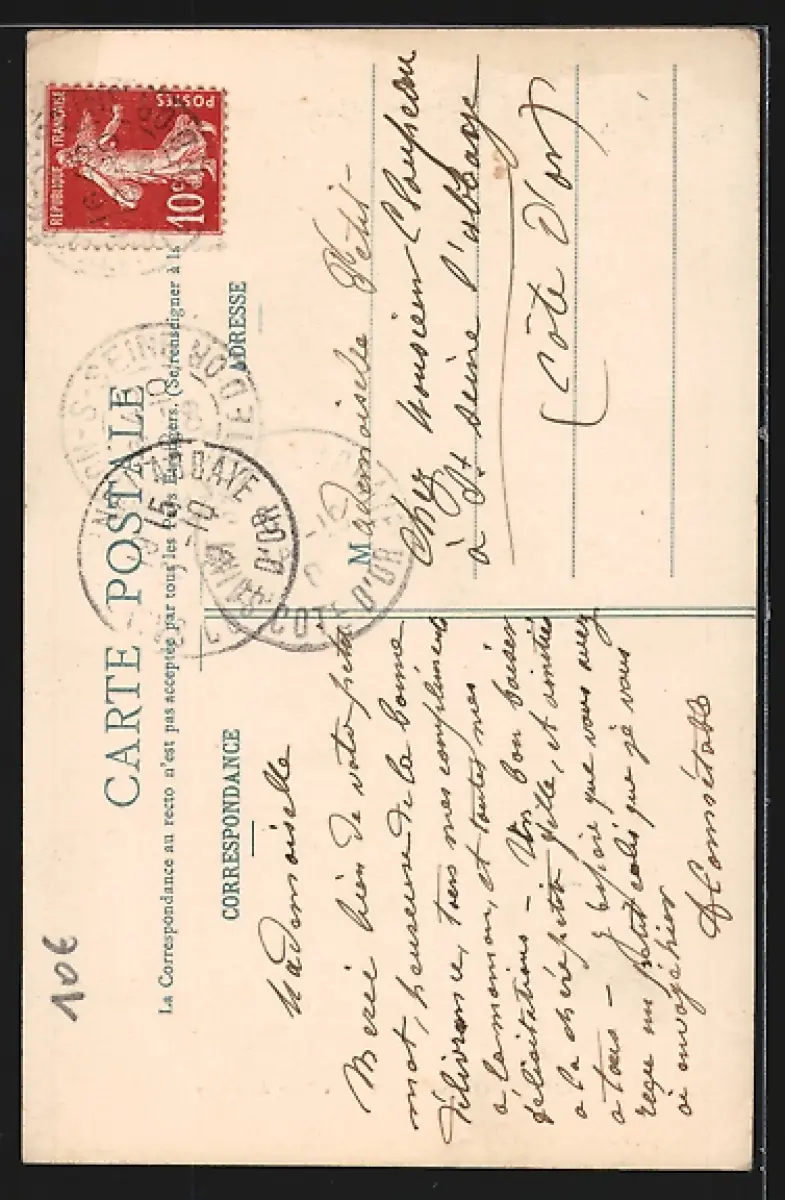 RÉPUBLIQUE FRANÇAISE
POSTES
10c
CARTE POSTALE
La Correspondance au recto n'est pas acceptée par tous les Pays Etrangers. (Se renseigner à la
CORRESPONDANCE
ADRESSE
10€
Mademoiselle
Merci bien de votre petit
mot, heureuse de la bonne
délivrance, tous mes compliments
à la maman, et toutes mes
félicitations - Un bon baiser
a la chère petite fille, et amitiés
a tous - J'espère que vous avez
reçue un petit colis que je vous
ai envoyé hier
Constable
Mademoiselle Petit-
Chez Monsieur
à St Seine l'abbaye
(Côte d'or)
ABBAYE
15
-10
CÔTE D'OR